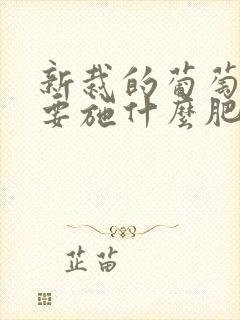 新栽的葡萄
要施什麼肥
芷苗